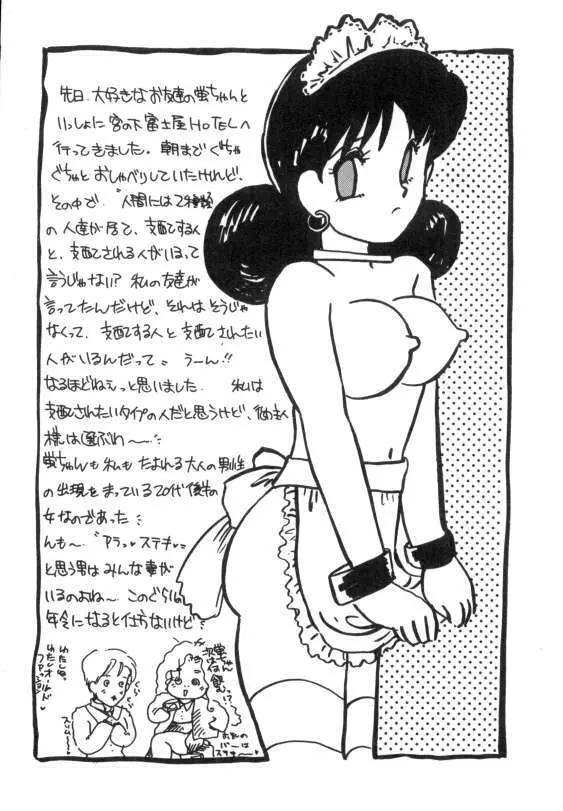 先日、大好きなお友達の蛍ちゃんと
いっしょに宮の下富士屋HOTELへ
行ってきました。朝までぐちゃ
ぐちゃとおしゃべりしていたけれど、
その中で、"人間には2種類
の人達が居て、支配する人
と、支配される人がいるって
言うじゃない? 私の友達が
言ってたんだけど、それはそうじゃ
なくって、支配する人と支配されたい
人がいるんだって。うーん!!
なるほどねぇっと思いました。私は
支配されたいタイプの人だと思うけど、
様は選ぶわ〜
蛍ちゃんも私もたよれる大人の男性
の出現をまっている20代後半の
女なのであった
んも〜 アラッステキ
と思う男はみんな妻が
いるのよね〜 このぐらいの
年令になると仕方ないけど